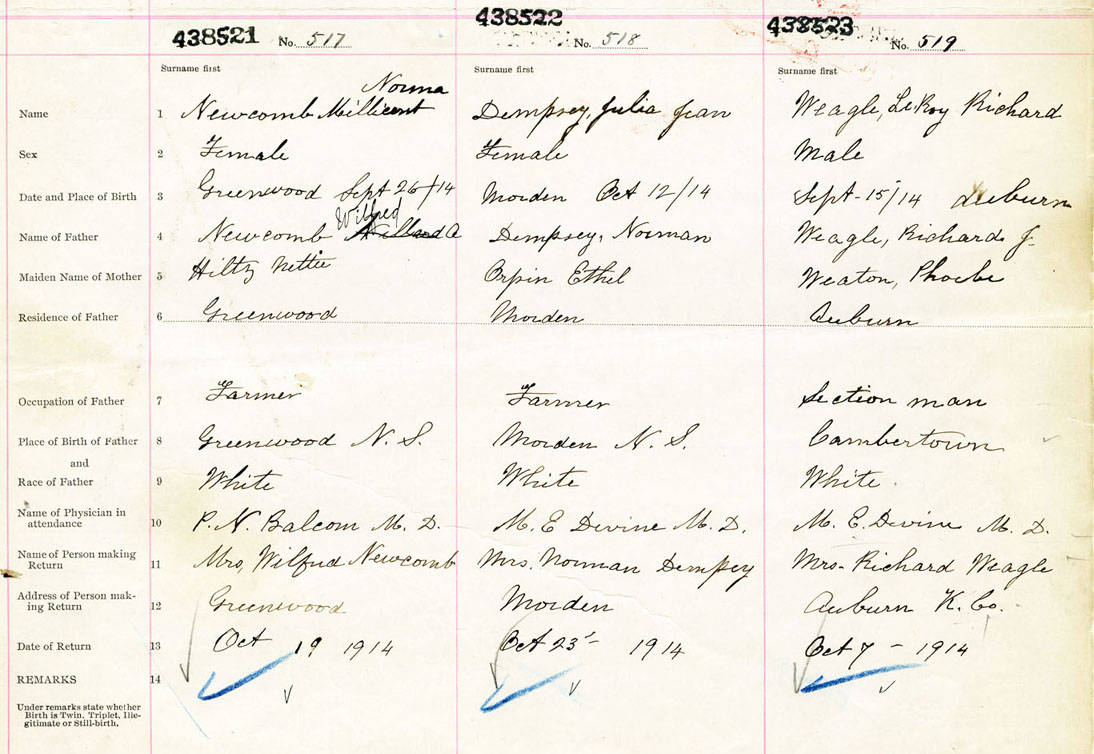 438521 No. 517 438522 No. 518 438523 No. 519
Surname first Surname first Surname first
Norma
Name 1 Newcomb Millicent Dempsey, Julia Jean Weagle, LeRoy Richard
Sex 2 Female Female Male
Date and Place of Birth 3 Greenwood Sept 26/14 Morden Oct 12/14 Sept-15/14 Auburn
Wilfred
Name of Father 4 Newcomb Willard A Dempsey, Norman Weagle, Richard J.
Maiden Name of Mother 5 Hiltz Nettie Orpin Ethel Weaton, Phoebe
Residence of Father 6 Greenwood Morden Auburn
Occupation of Father 7 Farmer Farmer Section man
Place of Birth of Father 8 Greenwood N. S. Morden N. S. Cambertown
and
Race of Father 9 White White White
Name of Physician in attendance 10 P. N. Balcom M. D. M. E Devine M. D. M. E. Devine M. D.
Name of Person making Return 11 Mrs, Wilfred Newcomb Mrs. Norman Dempsey Mrs. Richard Weagle
Address of Person mak-
ing Return 12 Greenwood Morden Auburn K. Co.
Date of Return 13 Oct 19 1914 Oct 23 1914 Oct 7 - 1914
REMARKS 14
Under remarks state whether
Birth is Twin, Triplet, Ille-
gitimate or Still-birth.